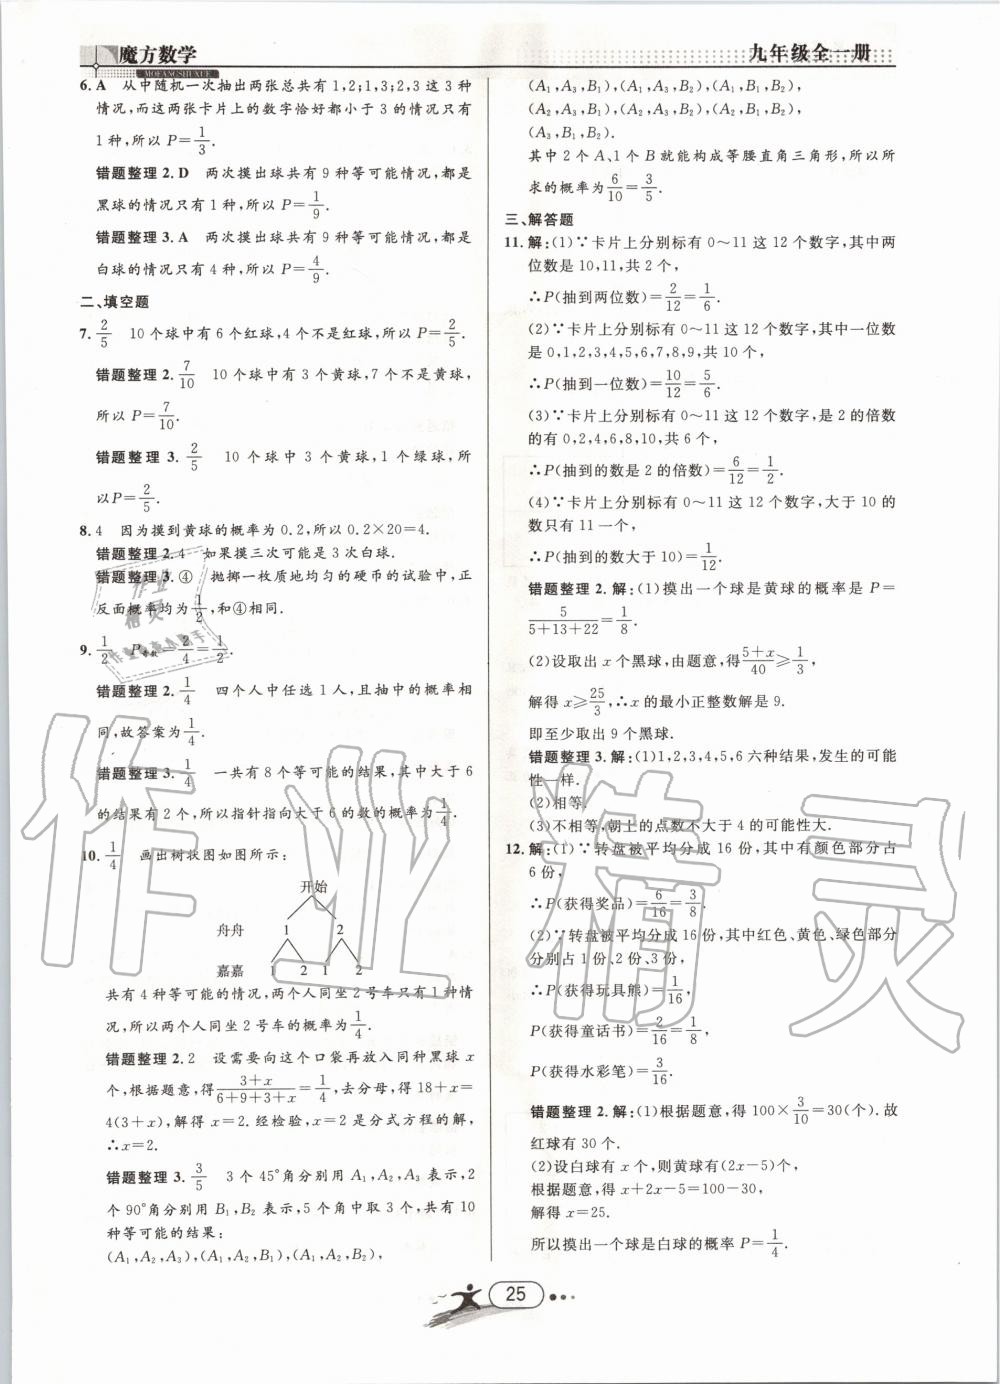 魔方数学
MOFANGSHUXUE
九年级全一册
6. A 从中随机一次抽出两张总共有 1,2;1,3;2,3 这 3 种
情况,而这两张卡片上的数字恰好都小于 3 的情况只有
1 种,所以 P=1/3.
错题整理 2. D 两次摸出球共有 9 种等可能情况,都是
黑球的情况只有 1 种,所以 P=1/9.
错题整理 3. A 两次摸出球共有 9 种等可能情况,都是
白球的情况只有 4 种,所以 P=4/9.
二、填空题
7. 2/5 10 个球中有 6 个红球,4 个不是红球,所以 P=2/5.
错题整理 2. 7/10 10 个球中有 3 个黄球,7 个不是黄球,
所以 P=7/10.
错题整理 3. 2/5 10 个球中 3 个黄球,1 个绿球,所
以 P=2/5.
8. 4 因为摸到黄球的概率为 0.2,所以 0.2×20=4.
错题整理 2. 4 如果摸三次可能是 3 次白球.
错题整理 3. ④ 抛掷一枚质地均匀的硬币的试验中,正
反面概率均为1/2,和④相同.
9. 1/2 P奇数=2/4=1/2.
错题整理 2. 1/4 四个人中任选 1 人,且抽中的概率相
同,故答案为1/4.
错题整理 3. 1/4 一共有 8 个等可能的结果,其中大于 6
的结果有 2 个,所以指针指向大于 6 的数的概率为1/4.
10. 1/4 画出树状图如图所示:
开始
舟舟 1 2
嘉嘉 1 2 1 2
共有 4 种等可能的情况,两个人同坐 2 号车只有 1 种情
况,所以两个人同坐 2 号车的概率为1/4.
错题整理 2. 2 设需要向这个口袋再放入同种黑球 x
个,根据题意,得(3+x)/(6+9+3+x)=1/4,去分母,得 18+x=
4(3+x),解得 x=2. 经检验, x=2 是分式方程的解,
∴x=2.
错题整理 3. 3/5 3 个 45°角分别用 A₁,A₂,A₃ 表示,2
个 90°角分别用 B₁,B₂ 表示,5 个角中取 3 个,共有 10
种等可能的结果:
(A₁,A₂,A₃),(A₁,A₂,B₁),(A₁,A₂,B₂),
(A₁,A₃,B₁),(A₁,A₃,B₂),(A₁,B₁,B₂),
(A₂,A₃,B₁),(A₂,A₃,B₂),(A₂,B₁,B₂),
(A₃,B₁,B₂).
其中 2 个 A、1 个 B 就能构成等腰直角三角形,所以所
求的概率为6/10=3/5.
三、解答题
11. 解:(1)∵卡片上分别标有 0~11 这 12 个数字,其中两
位数是 10,11,共 2 个,
∴P(抽到两位数)=2/12=1/6.
(2)∵卡片上分别标有 0~11 这 12 个数字,其中一位数
是 0,1,2,3,4,5,6,7,8,9,共 10 个,
∴P(抽到一位数)=10/12=5/6.
(3)∵卡片上分别标有 0~11 这 12 个数字,是 2 的倍数
的有 0,2,4,6,8,10,共 6 个,
∴P(抽到的数是 2 的倍数)=6/12=1/2.
(4)∵卡片上分别标有 0~11 这 12 个数字,大于 10 的
数只有 11 一个,
∴P(抽到的数大于 10)=1/12.
错题整理 2. 解:(1)摸出一个球是黄球的概率是 P=
5/(5+13+22)=1/8.
(2)设取出 x 个黑球,由题意,得(5+x)/40≥1/3,
解得 x≥25/3,∴x 的最小正整数解是 9.
即至少取出 9 个黑球.
错题整理 3. 解:(1)1,2,3,4,5,6 六种结果,发生的可能
性一样.
(2)相等.
(3)不相等,朝上的点数不大于 4 的可能性大.
12. 解:(1)∵转盘被平均分成 16 份,其中有颜色部分占
6 份,
∴P(获得奖品)=6/16=3/8.
(2)∵转盘被平均分成 16 份,其中红色、黄色、绿色部分
分别占 1 份、2 份、3 份,
∴P(获得玩具熊)=1/16,
P(获得童话书)=2/16=1/8,
P(获得水彩笔)=3/16.
错题整理 2. 解:(1)根据题意,得 100×3/10=30(个). 故
红球有 30 个.
(2)设白球有 x 个,则黄球有(2x-5)个,
根据题意,得 x+2x-5=100-30,
解得 x=25.
所以摸出一个球是白球的概率 P=1/4.
25
作业精灵